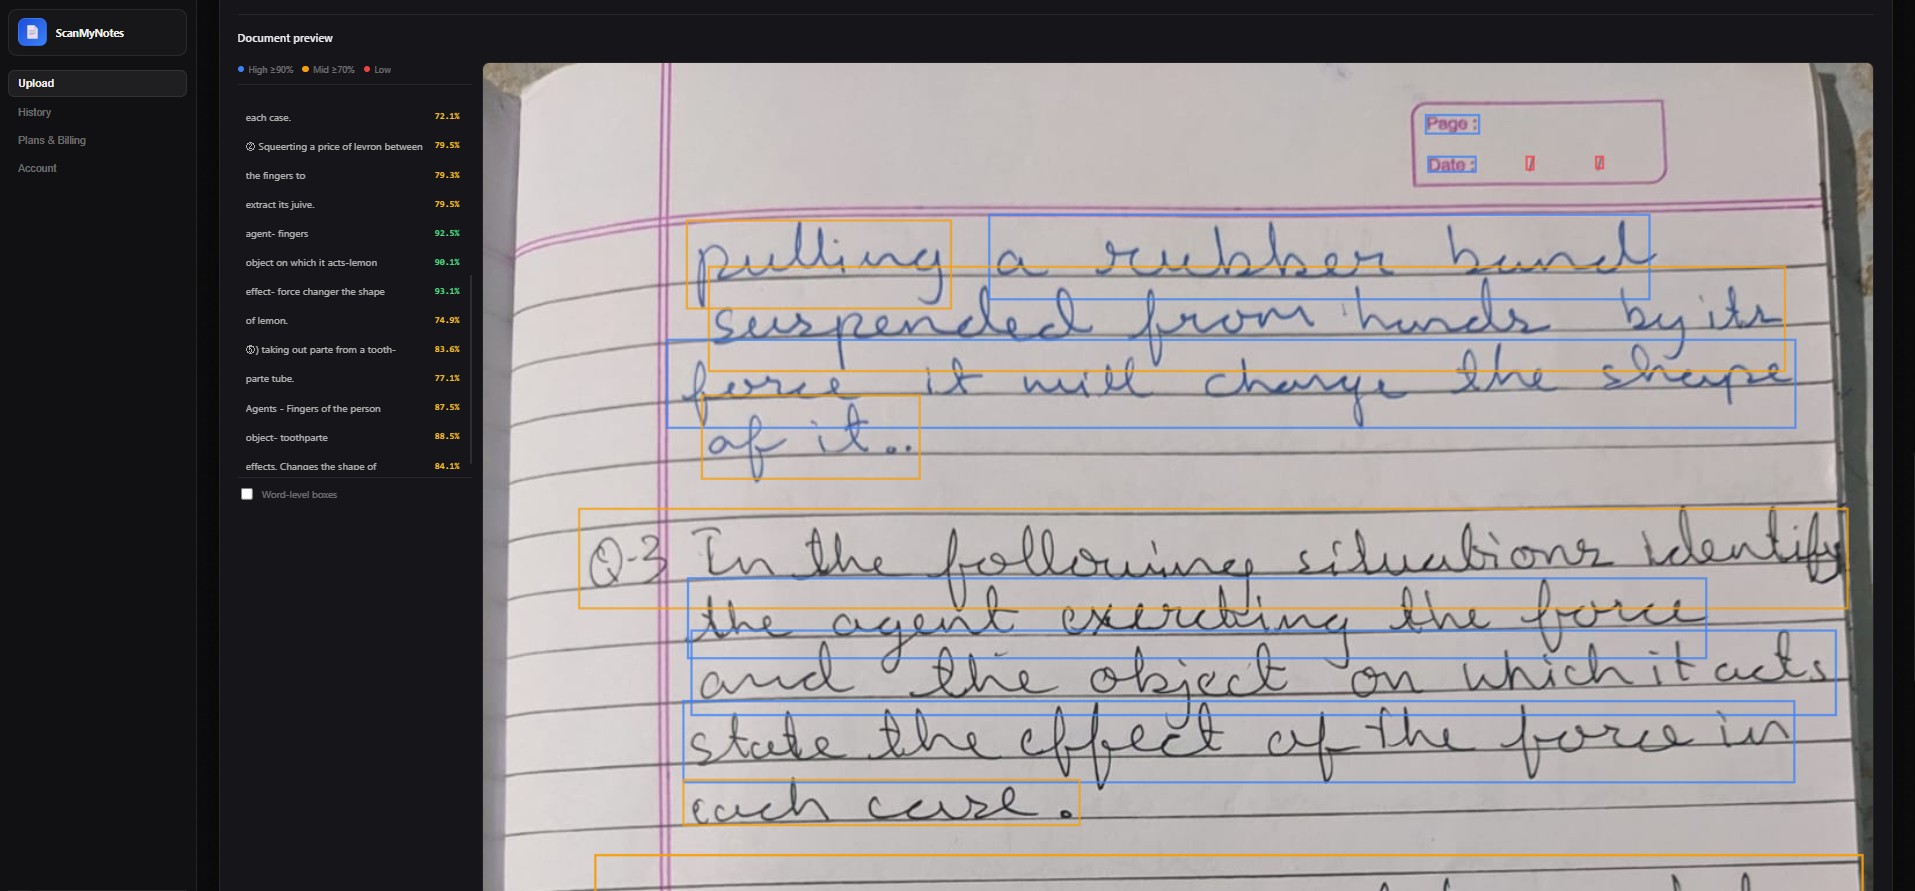 ScanMyNotes
Upload
History
Plans & Billing
Account
Document preview
High ≥90% Mid ≥70% Low
each case. 72.1%
② Squeerting a price of levron between 79.5%
the fingers to 79.3%
extract its juive. 79.5%
agent- fingers 92.5%
object on which it acts-lemon 90.1%
effect- force changer the shape 93.1%
of lemon. 74.9%
⑤) taking out parte from a tooth- 83.6%
parte tube. 77.1%
Agents - Fingers of the person 87.5%
object- toothparte 88.5%
effects. Changes the shape of 84.1%
Word-level boxes
Page :
Date : / /
pulling a rubber band
suspended from hands by its
force it will change the shape
of it..
Q-3 In the following situations identify
the agent exerting the force
and the object on which it acts
state the effect of the force in
each case.